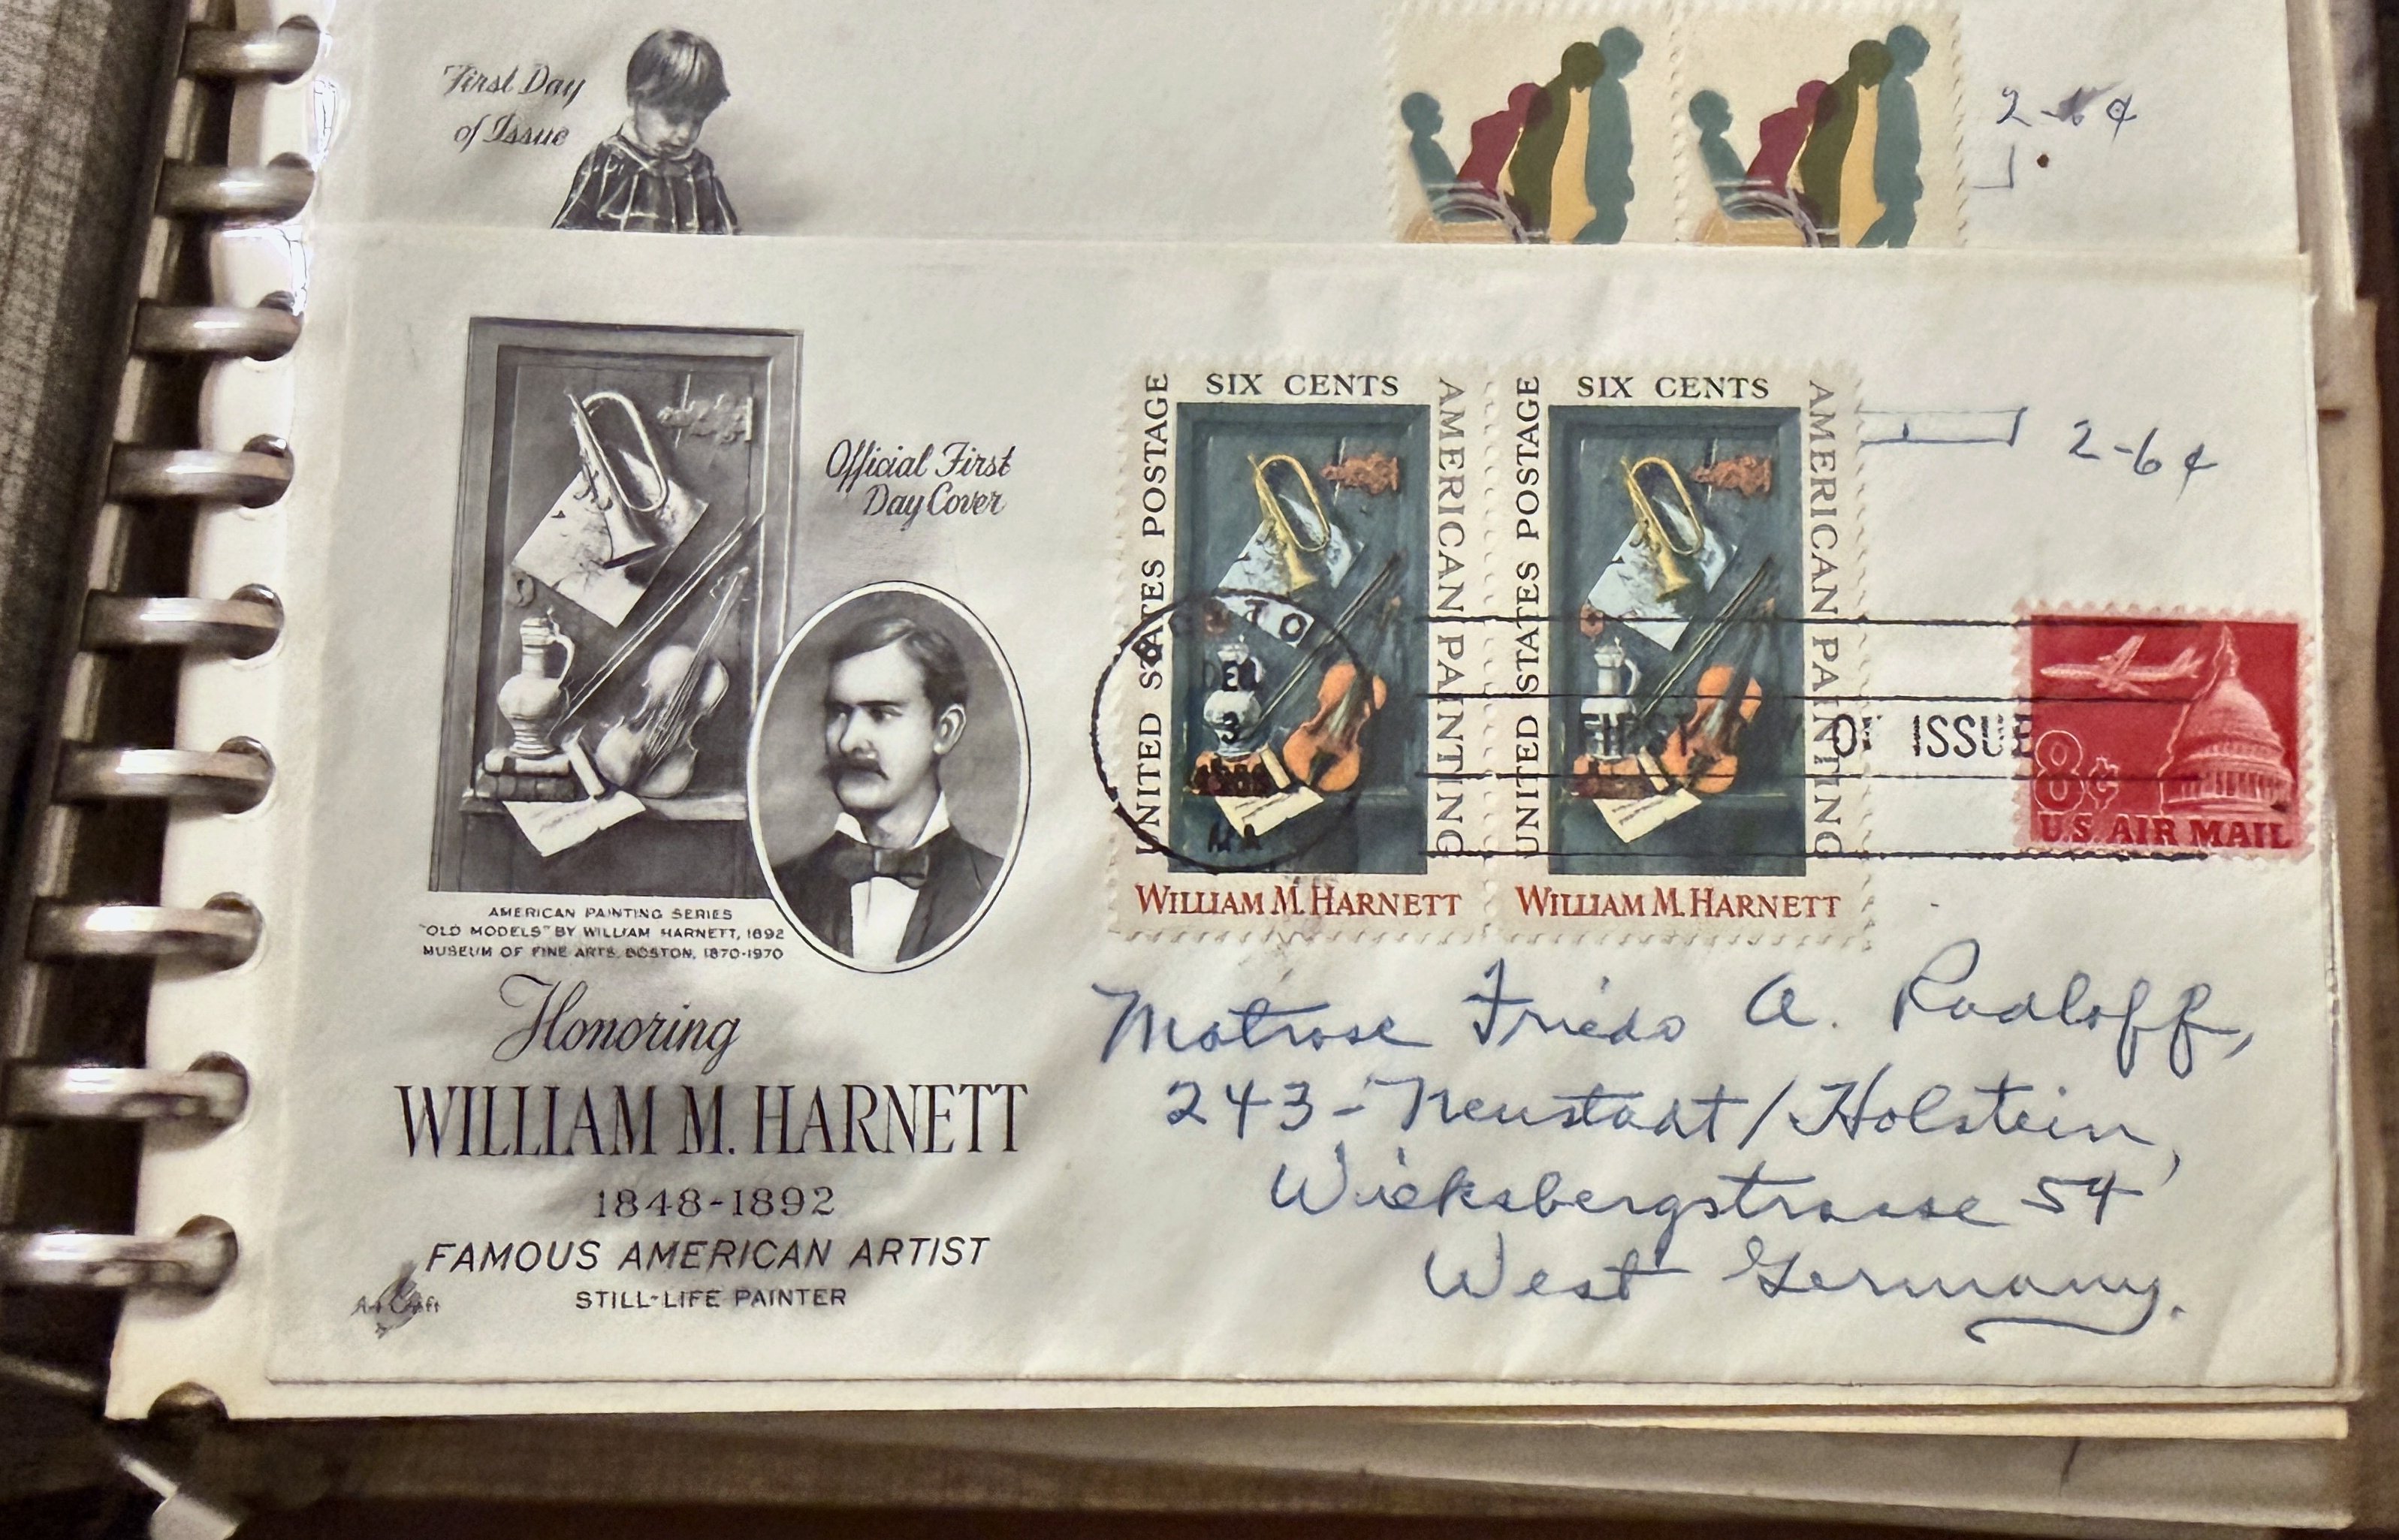 First Day
of Issue
2-6¢
Official First
Day Cover
AMERICAN PAINTING SERIES
"OLD MODELS" BY WILLIAM HARNETT, 1892
MUSEUM OF FINE ARTS, BOSTON, 1870-1970
Honoring
WILLIAM M. HARNETT
1848-1892
FAMOUS AMERICAN ARTIST
STILL-LIFE PAINTER
SIX CENTS
UNITED STATES POSTAGE
AMERICAN PAINTING
WILLIAM M. HARNETT
SIX CENTS
UNITED STATES POSTAGE
AMERICAN PAINTING
WILLIAM M. HARNETT
2-6¢
DEC
3
MA
FIRST
OF ISSUE
8¢
US AIR MAIL
Matrose Friedo A. Radloff,
243-Neustadt/Holstein,
Wieksbergstrasse 54
West Germany.